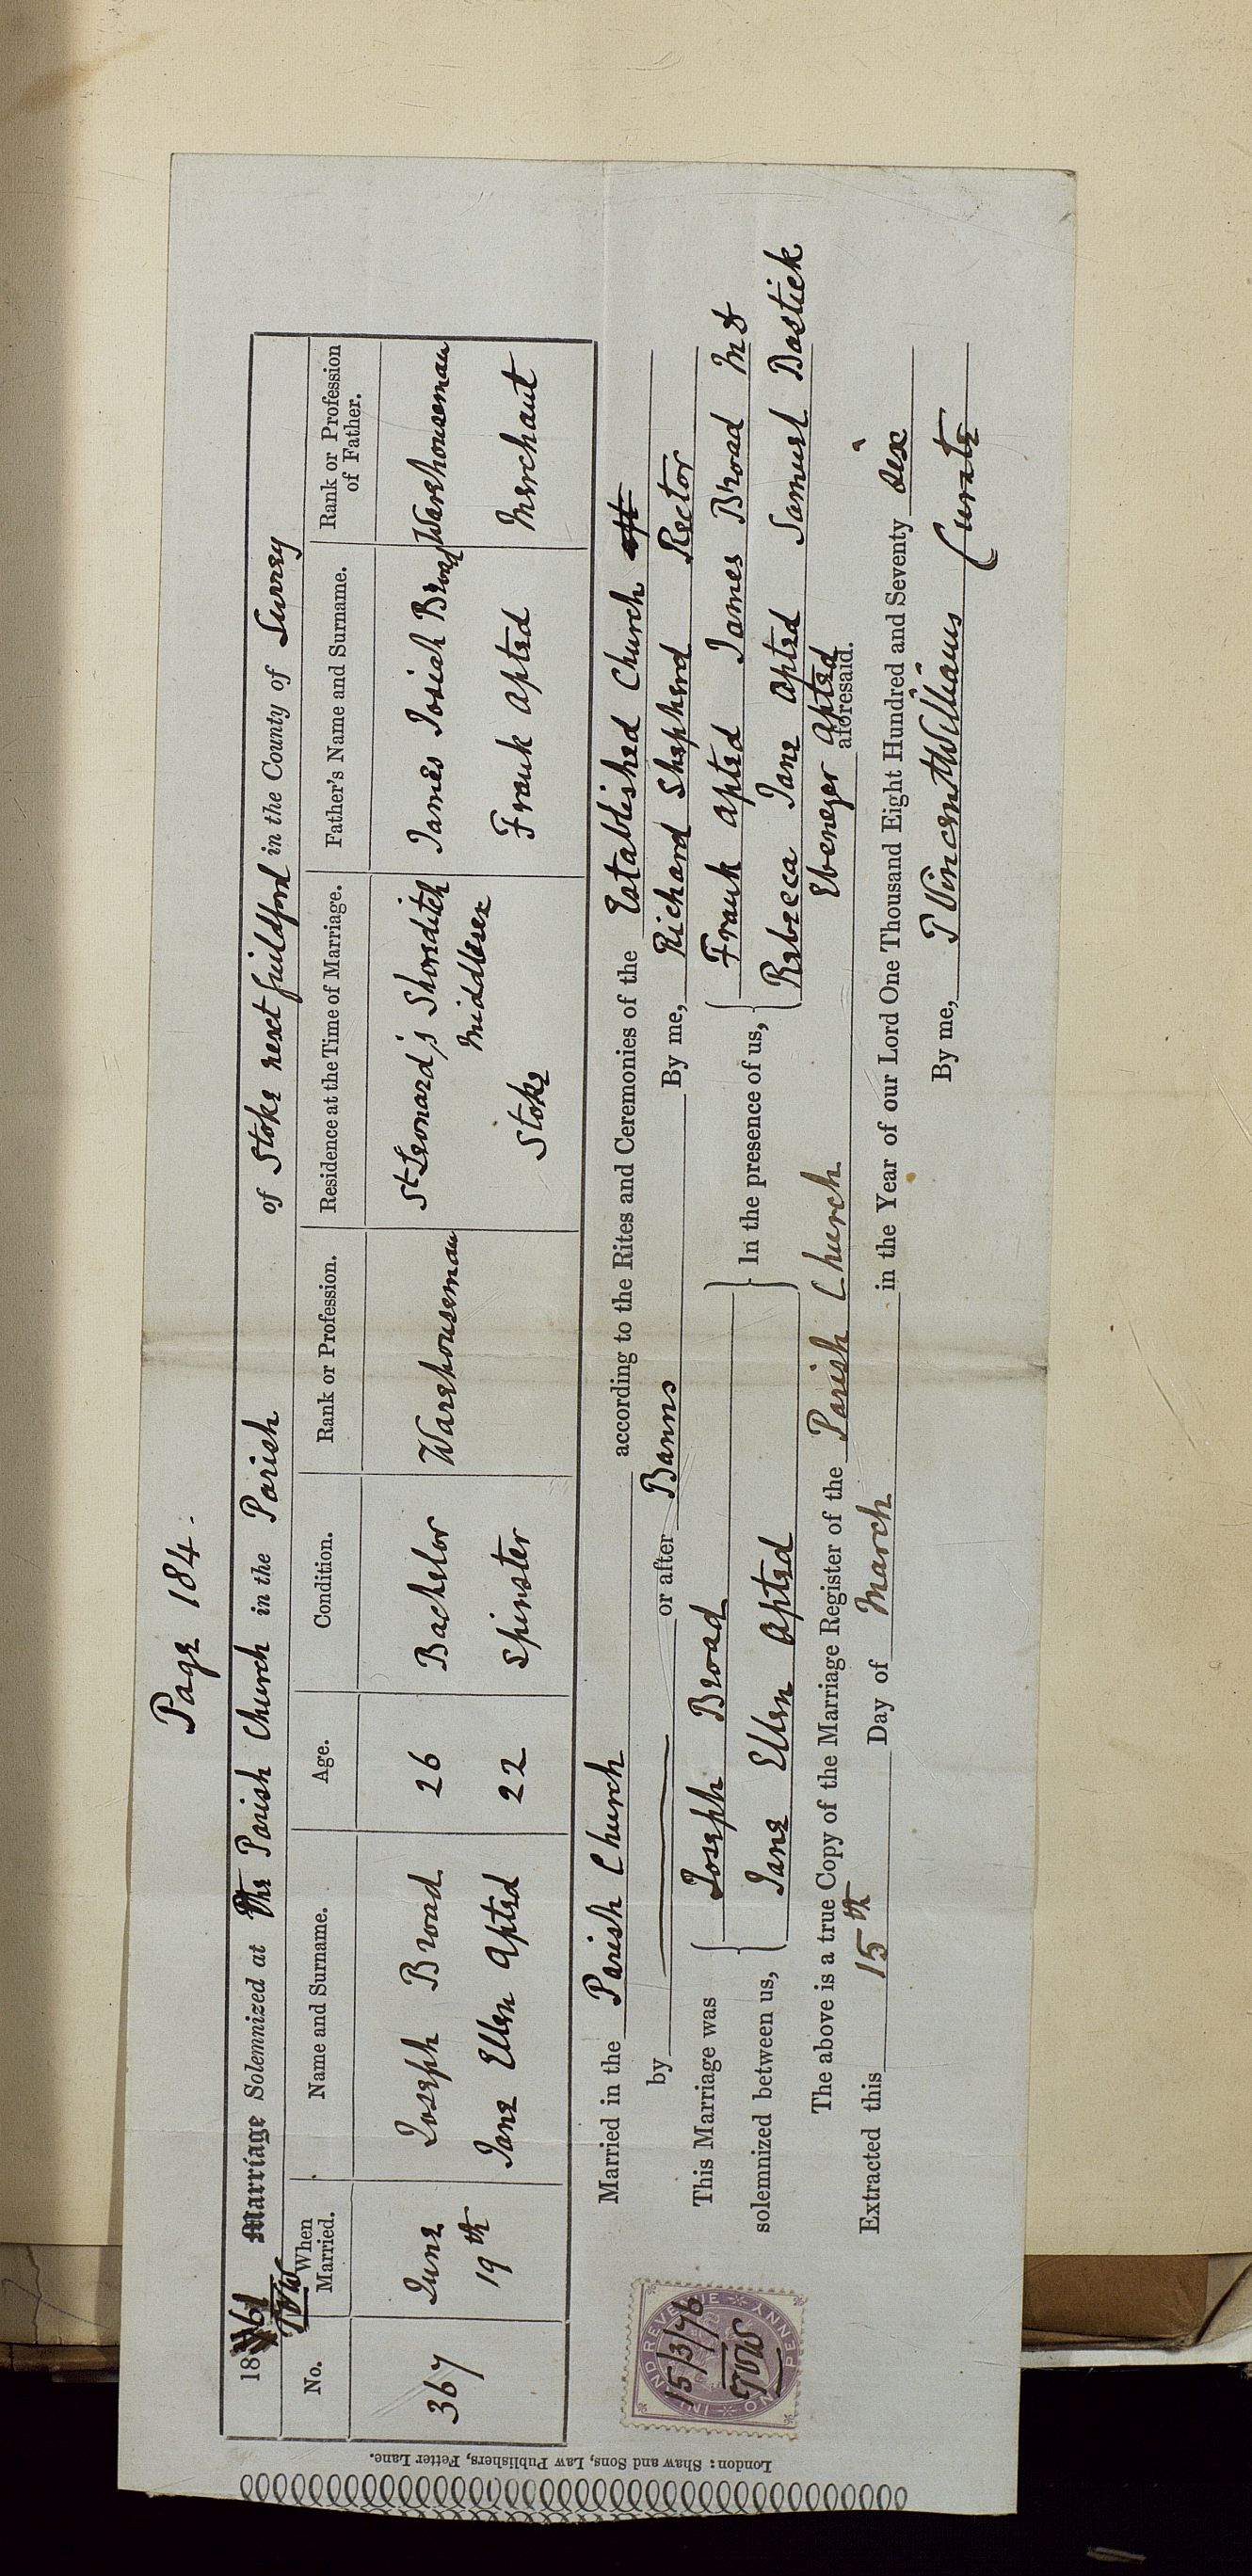 Page 184.
1861 Marriage Solemnized at The Parish Church in the Parish of Stoke next Guildford in the County of Surrey
TVW
No. When Married. Name and Surname. Age. Condition. Rank or Profession. Residence at the Time of Marriage. Father's Name and Surname. Rank or Profession of Father.
367 June 19th Joseph Broad 26 Bachelor Warehouseman St Leonard's Shoreditch Middlesex James Josiah Broad Warehouseman
Jane Ellen Apted 22 Spinster Stoke Frank Apted Merchant
Married in the Parish Church according to the Rites and Ceremonies of the Established Church
by or after Banns By me, Richard Shepherd Rector
This Marriage was solemnized between us, Joseph Broad Jane Ellen Apted In the presence of us, Frank Apted James Broad
Rebecca Jane Apted Samuel Bostick
Ebenezer Apted
The above is a true Copy of the Marriage Register of the Parish Church aforesaid.
Extracted this 15th Day of March in the Year of our Lord One Thousand Eight Hundred and Seventy six
By me, T Vincent Williams Curate
INLAND REVENUE ONE PENNY
15/3/76
TVW
London: Shaw and Sons, Law Publishers, Fetter Lane.